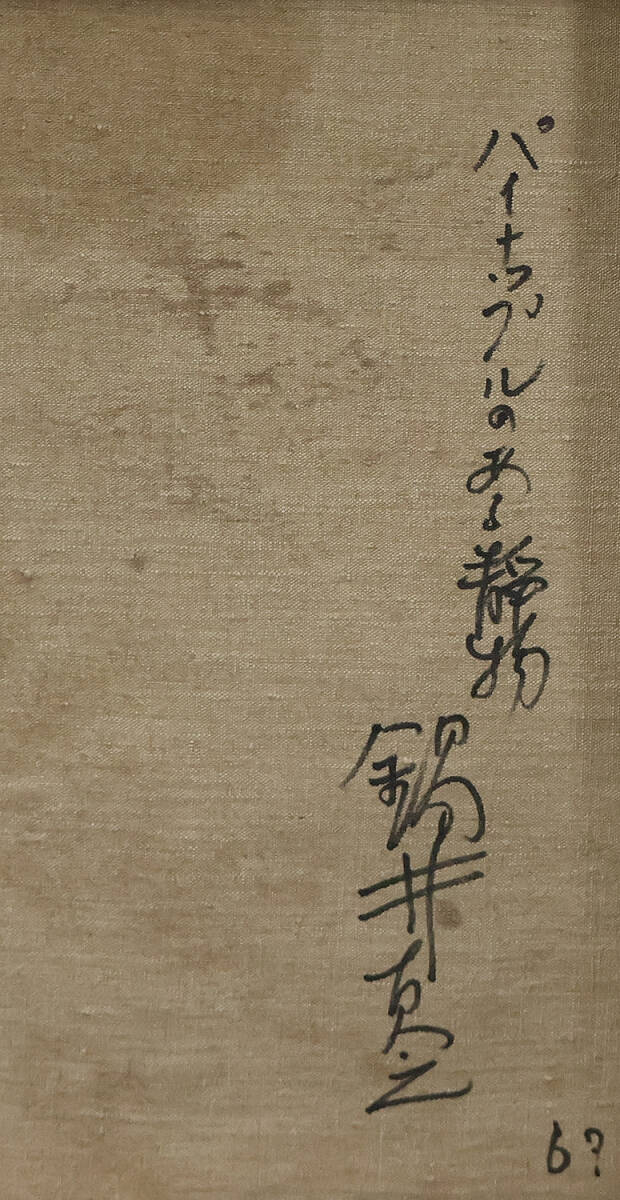 パイナップルのある静物
鍋井克之
6?